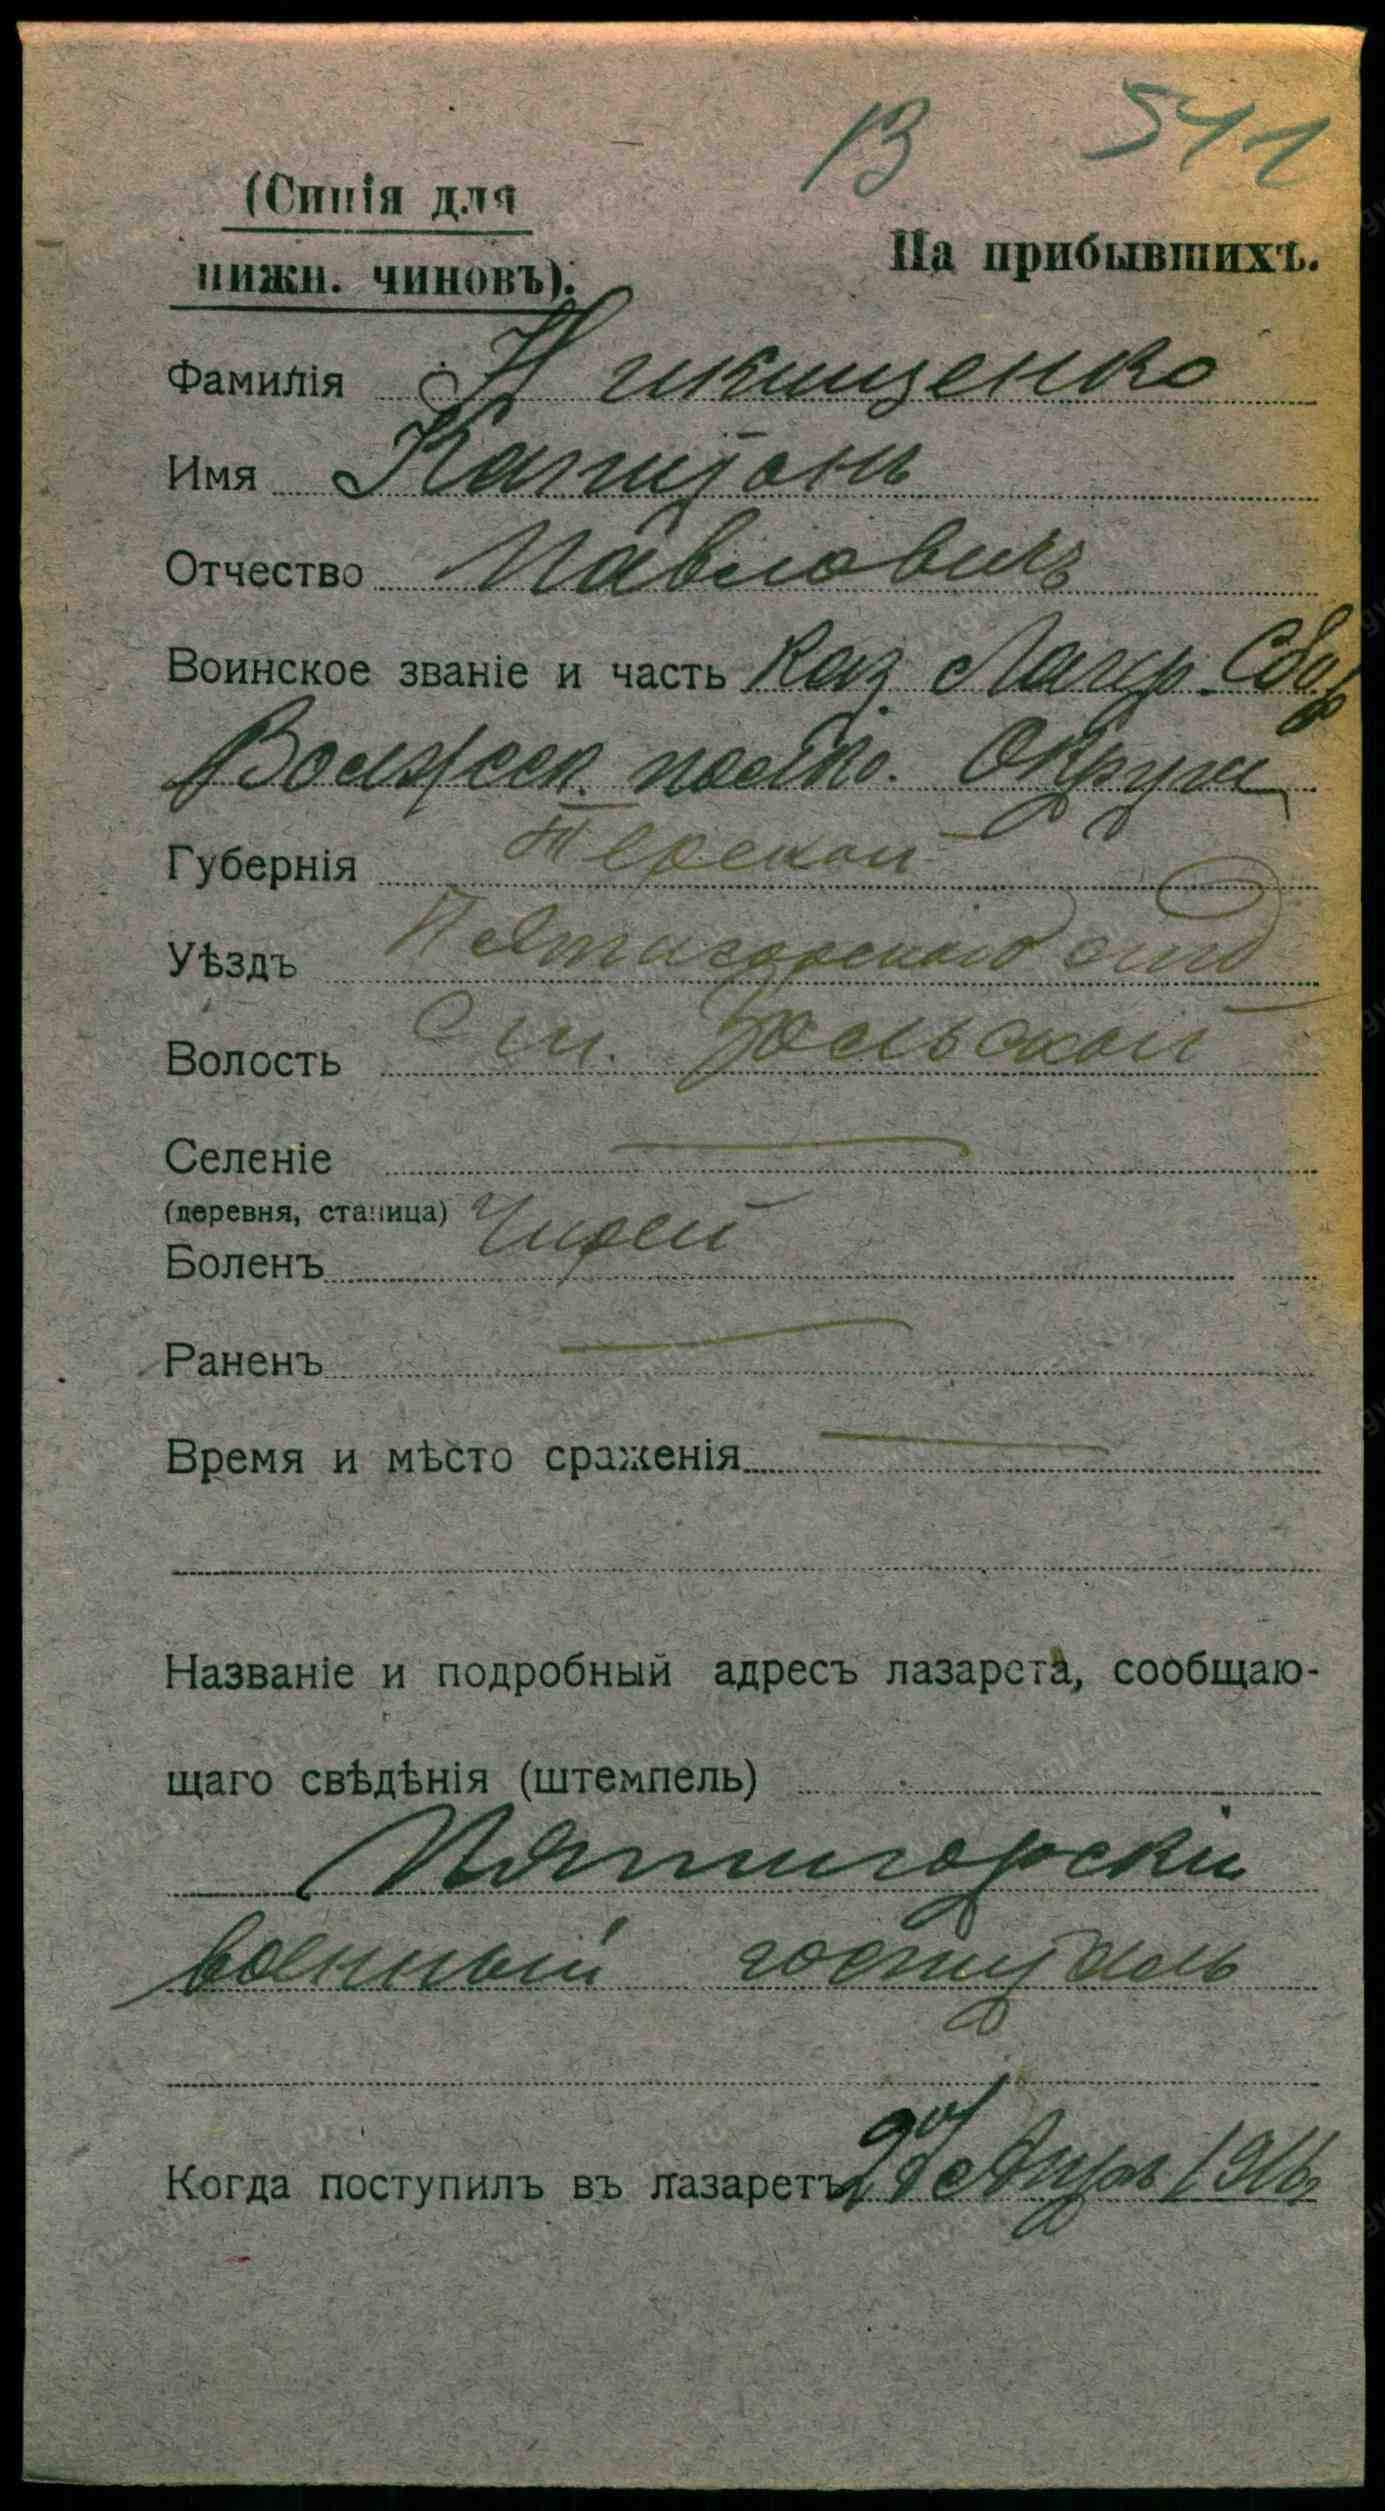 13 541
(Синія для
нижн. чиновъ).
На прибывшихъ.
Фамилія Никищенко
Имя Капитонъ
Отчество Павловичъ
Воинское званіе и часть Каз Лагер. Сбор
Волжск. полко. Округ
Губернія Терской
Уѣздъ Пятигорскаго отд
Волость Ст. Зольской
Селеніе
(деревня, станица)
Боленъ Чирей
Раненъ
Время и мѣсто сраженія
Названіе и подробный адресъ лазарета, сообщаю-
щаго свѣдѣнія (штемпель)
Пятигорскій
военный госпиталь
Когда поступилъ въ лазаретъ Апрѣ 1916